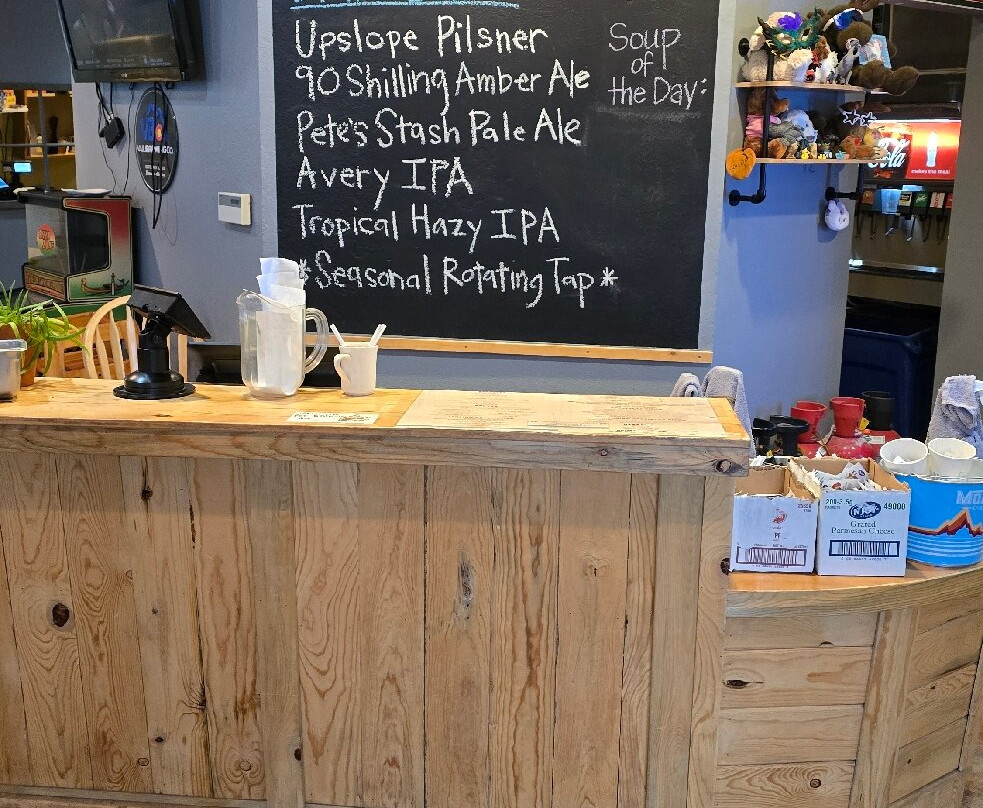 Upslope Pilsner
90 Shilling Amber Ale
Pete's Stash Pale Ale
Avery IPA
Tropical Hazy IPA
*Seasonal Rotating Tap*
Soup
of
the Day:
Cola
makes the meal
PF
200-3.5g
49000
Grated
Parmesan Cheese